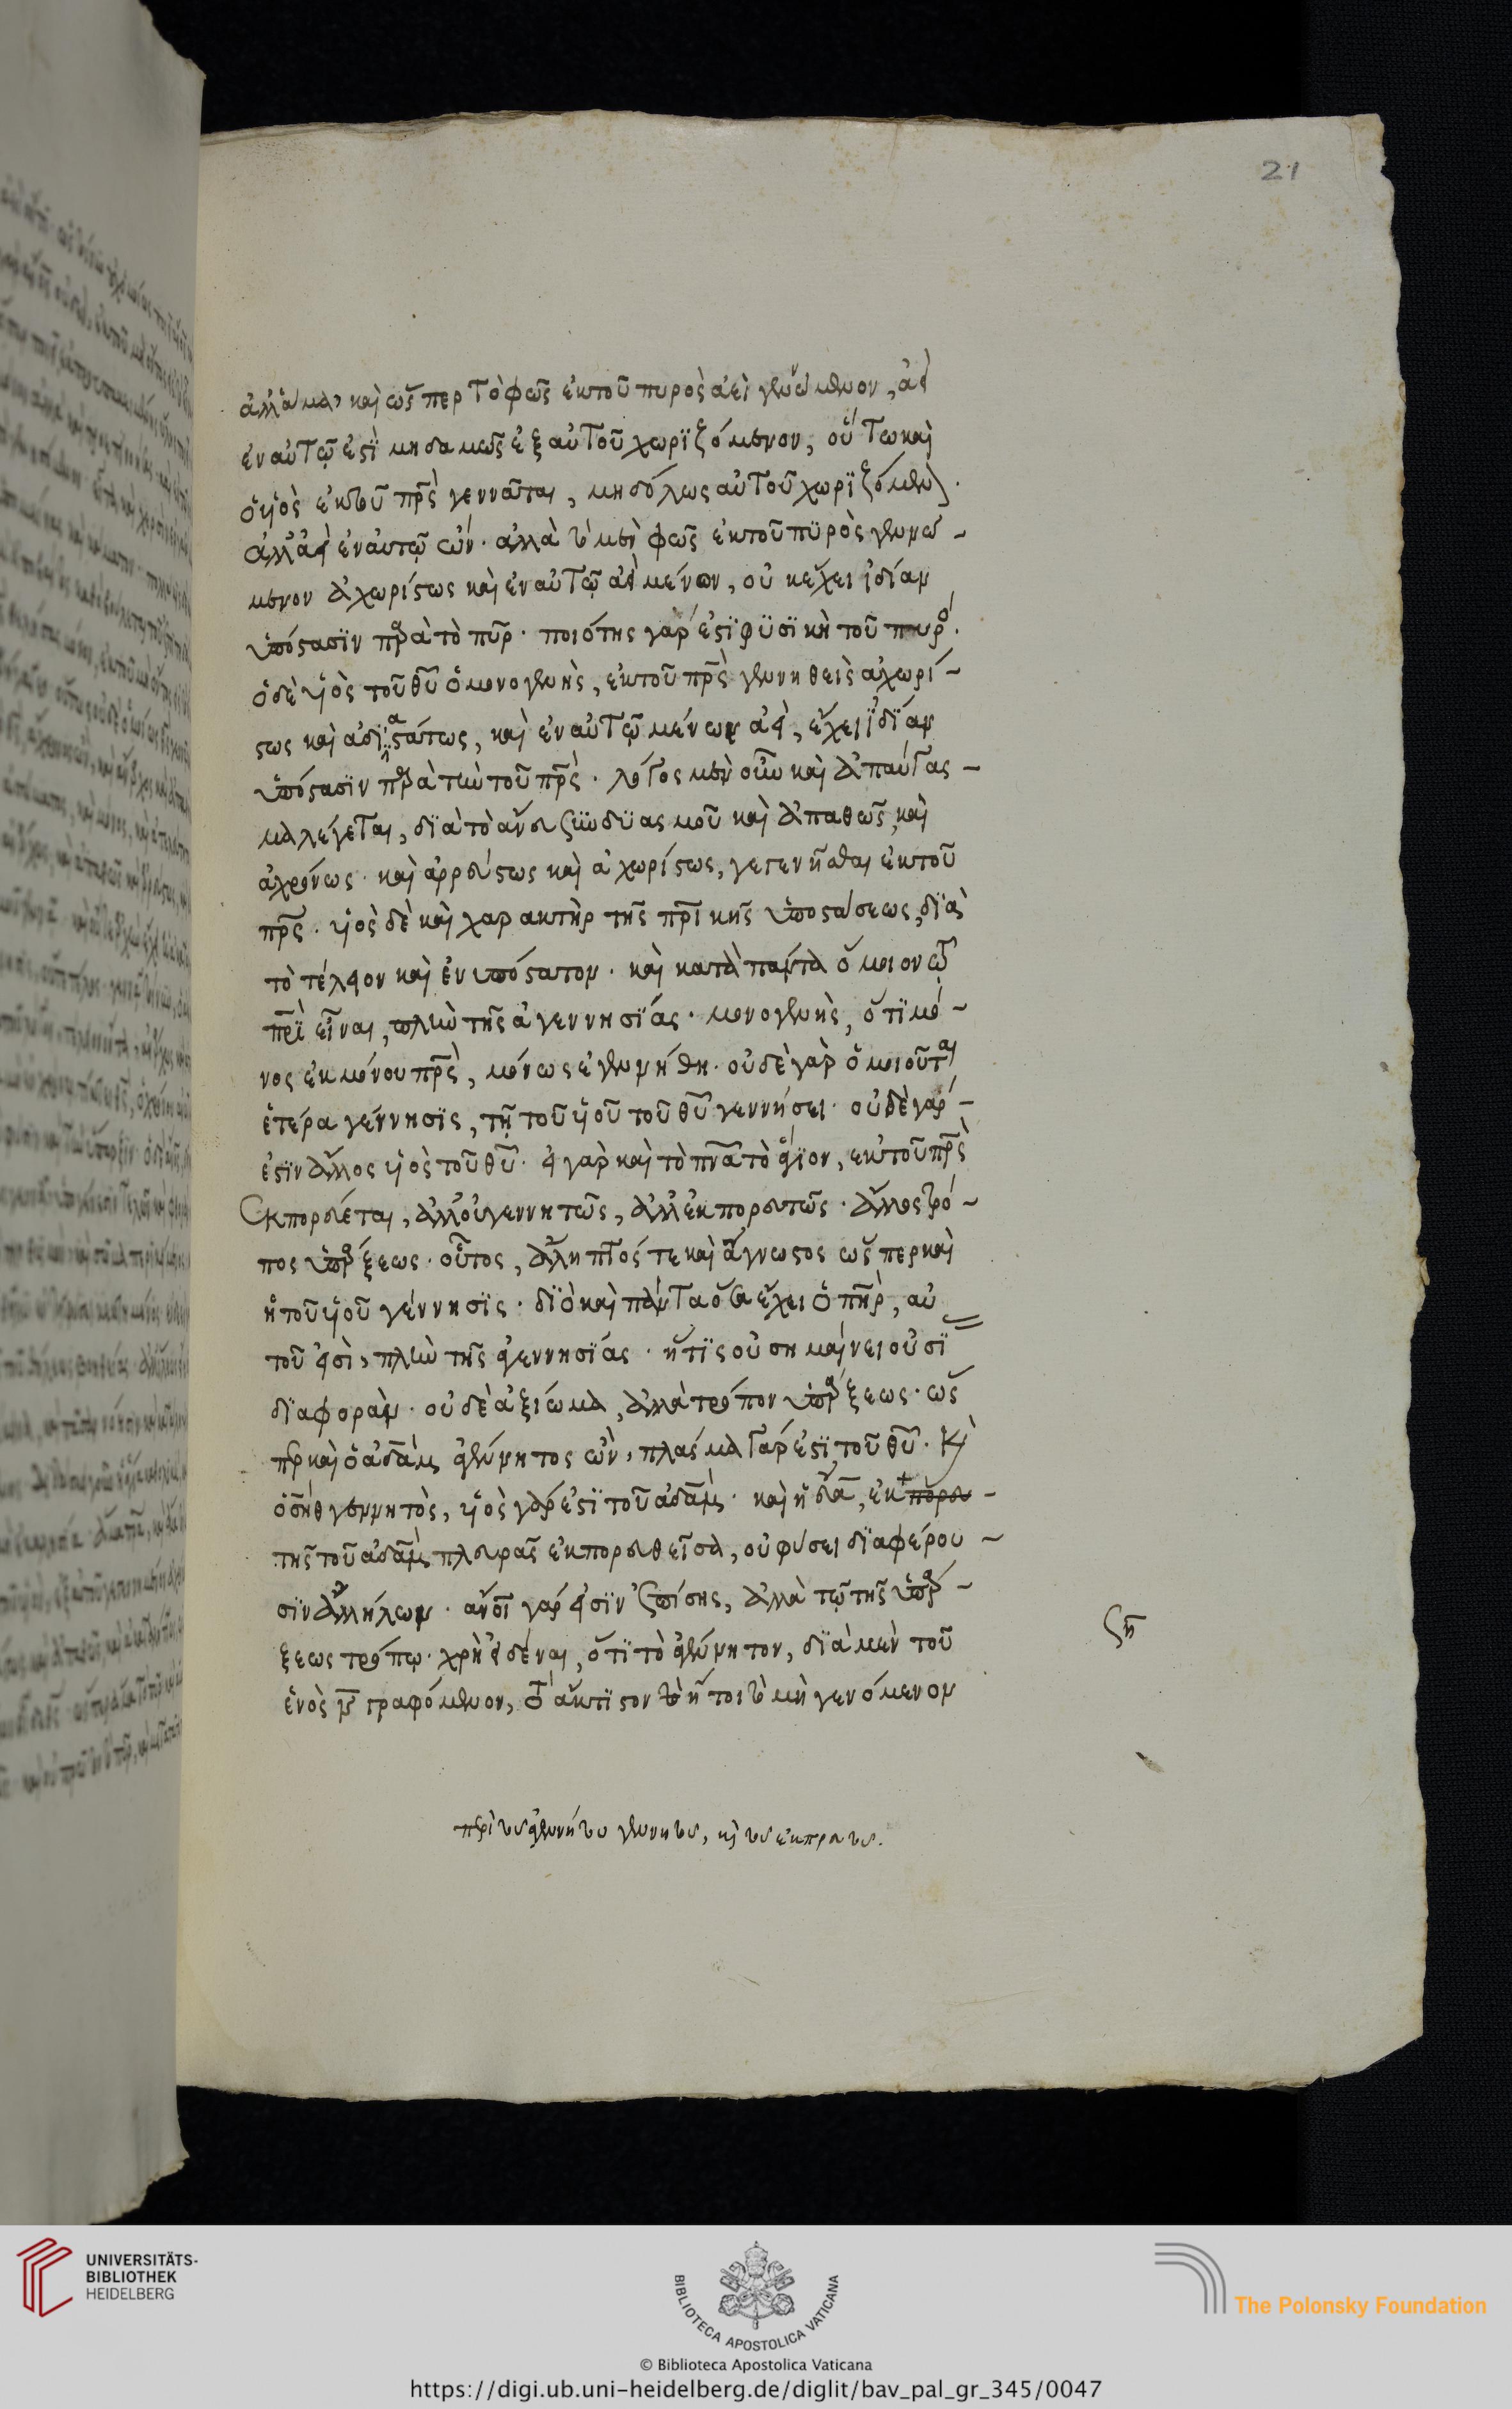 21
ἀλλ' ἅμα, καὶ ὥσπερ τὸ φῶς ἐκ τοῦ πυρὸς ἀεὶ γεννώμενον, ἀεὶ
ἐν αὐτῷ ἐστὶ μηδαμῶς ἐξ αὐτοῦ χωριζόμενον, οὕτω καὶ
ὁ υἱὸς ἐκ τοῦ πρς γεννᾶται, μηδόλως αὐτοῦ χωριζόμενος.
ἀλλ' ἀεὶ ἐν αὐτῷ ὤν. ἀλλὰ τὸ μὲν φῶς ἐκ τοῦ πυρὸς γεννώ-
μενον ἀχωρίστως καὶ ἐν αὐτῷ ἀεὶ μένον, οὐκ ἔχει ἰδίαν
ὑπόστασιν παρὰ τὸ πῦρ. ποιότης γάρ ἐστι φυσικὴ τοῦ πυρός.
ὁ δὲ υἱὸς τοῦ θυ ὁ μονογενὴς, ἐκ τοῦ πρς γεννηθεὶς ἀχωρί-
στως καὶ ἀδιαστάτως, καὶ ἐν αὐτῷ μένων ἀεὶ, ἔχει ἰδίαν
ὑπόστασιν παρὰ τὴν τοῦ πρς. λόγος μὲν οὖν καὶ ἀπαύγας-
μα λέγεται, διὰ τὸ ἄνευ συνδυασμοῦ καὶ ἀπαθῶς, καὶ
ἀχρόνως. καὶ ἀρρεύστως καὶ ἀχωρίστως, γεγεννῆσθαι ἐκ τοῦ
πρς. υἱὸς δὲ καὶ χαρακτὴρ τῆς πρικῆς ὑποστάσεως, διὰ
τὸ τέλειον καὶ ἐνυπόστατον. καὶ κατὰ πάντα ὅμοιον τῷ
πρι εἶναι, πλὴν τῆς ἀγεννησίας. μονογενὴς, ὅτι μό-
νος ἐκ μόνου πρς, μόνως ἐγεννήθη. οὐδὲ γὰρ ὁμοιοῦται
ἑτέρα γέννησις, τῇ τοῦ υἱοῦ τοῦ θυ γεννήσει. οὐδὲ γάρ-
ἐστιν ἄλλος υἱὸς τοῦ θυ. εἰ γὰρ καὶ τὸ πνα τὸ ἅγιον, ἐκ τοῦ πρς
ἐκπορεύεται, ἀλλ' οὐ γεννητῶς, ἀλλ' ἐκπορευτῶς. ἄλλος τρό-
πος ὑπάρξεως. οὗτος, ἄληπτός τε καὶ ἄγνωστος ὥσπερ καὶ
ἡ τοῦ υἱοῦ γέννησις. διὸ καὶ πάντα ὅσα ἔχει ὁ πηρ, αὐ
τοῦ εἰσὶ, πλὴν τῆς ἀγεννησίας. ἥτις οὐ σημαίνει οὐσι
διαφορὰν. οὐδὲ ἀξίωμα, ἀλλὰ τρόπον ὑπάρξεως. ὥς
περ καὶ ὁ ἀδὰμ ἀγέννητος ὢν, πλάσμα γάρ ἐστι τοῦ θυ. καὶ
ὁ σὴθ γεννητὸς, υἱὸς γάρ ἐστι τοῦ ἀδὰμ. καὶ ἡ εὔα, ἐκ πορευ-
τῆς τοῦ ἀδὰμ πλευρᾶς ἐκπορευθεῖσα, οὐ φύσει διαφέρου-
σιν ἀλλήλων. ἄνοι γάρ εἰσιν ἐπίσης, ἀλλὰ τῷ τῆς ὑπάρ-
ξεως τρόπῳ. χρὴ εἰδέναι, ὅτι τὸ ἀγένητον, διὰ μὲν τοῦ
ἑνὸς ν γραφόμενον, τὸ ἄκτιστον ἤτοι τὸ μὴ γενόμενον
ση
περὶ τοῦ ἀγεννήτου γεννητοῦ, καὶ τοῦ ἐκπορευτοῦ.
UNIVERSITÄTS-
BIBLIOTHEK
HEIDELBERG
BIBLIOTECA APOSTOLICA VATICANA
The Polonsky Foundation
© Biblioteca Apostolica Vaticana
https://digi.ub.uni-heidelberg.de/diglit/bav_pal_gr_345/0047